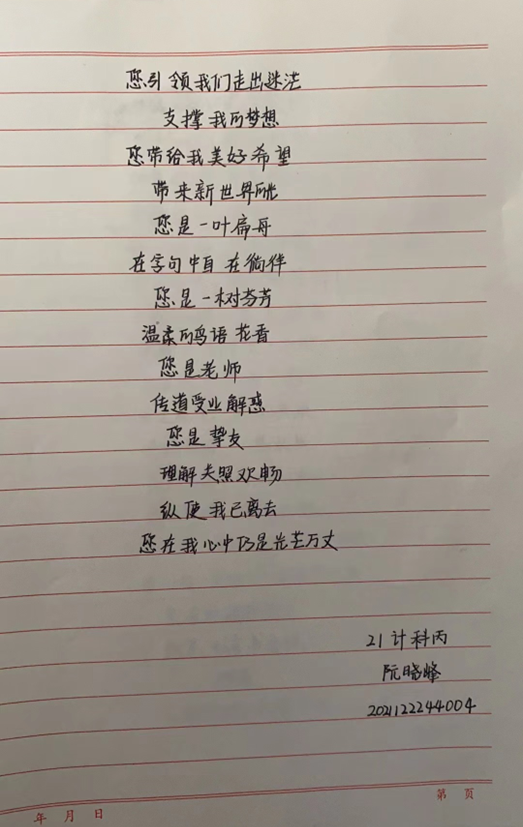 您引领我们走出迷茫
支撑我的梦想
您带给我美好希望
带来新世界的光
您是一叶扁舟
在字句中自在徜徉
您是一树芬芳
温柔的鸟语花香
您是老师
传道受业解惑
您是挚友
理解关照欢畅
纵使我已离去
您在我心中仍是光芒万丈
21计科丙
阮晓峰
202112244004
第 页
年 月 日